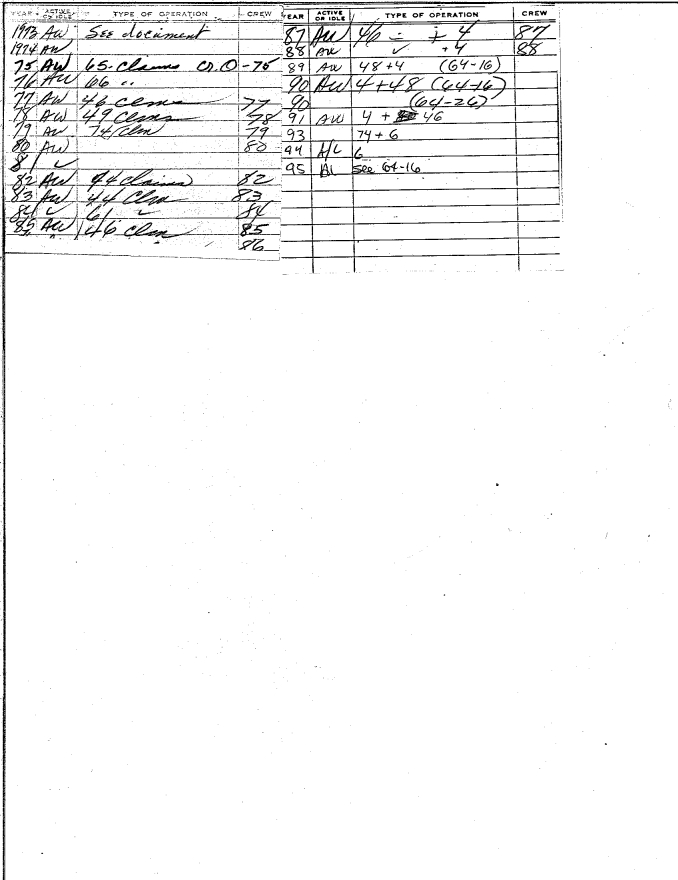 YEAR ACTIVE OR IDLE TYPE OF OPERATION CREW
1973 AW See document
1974 AW
75 AW 65 - Claims Cr. O - 75
76 AW 66 "
77 AW 46 clms 77
78 AW 49 Clms 78
79 AW 74 / clm 79
80 AW 80
81 ✓
82 AW 44 claims 82
83 AW 44 Clm 83
84 ✓ 61 ✓ 84
85 AW 46 Clm 85
86
YEAR ACTIVE OR IDLE TYPE OF OPERATION CREW
87 AW 46 + 4 87
88 AW ✓ + 4 88
89 AW 48 + 4 (64-16)
90 AW 4 + 48 (64-16)
90 (64-26)
91 AW 4 + 46
93 74 + 6
94 A/L 6
95 AL see 64-16